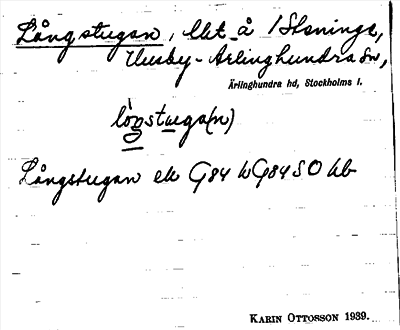 Långstugan, lht å 1 Steninge,
Husby-Ärlinghundra sn,
Ärlinghundra hd, Stockholms l.
lòŋstuga(n)
Långstugan ek G84 h G84 SO hb
KARIN OTTOSSON 1939.